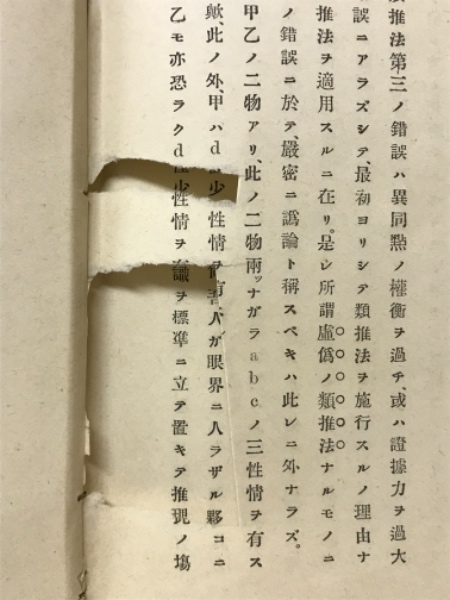 推法第三ノ錯誤ハ異同㸃ノ權衡ヲ過チ、或ハ證據力ヲ過大
誤ニアラズシテ、最初ヨリシテ類推法ヲ施行スルノ理由ナ
推法ヲ適用スルニ在リ。是レ所謂虛僞ノ類推法ナルモノニ
ノ錯誤ニ於テ、嚴密ニ譌論ト稱スベキハ此レニ外ナラズ。
甲乙ノ二物アリ、此ノ二物兩ッナガラabcノ三性情ヲ有ス
歟、此ノ外、甲ハd 少性情ヲ有 人ガ眼界ニ入ラザル夥コニ
乙モ亦恐ラクd 少性情ヲ 識ヲ標凖ニ立テ置キテ推毘ノ塲